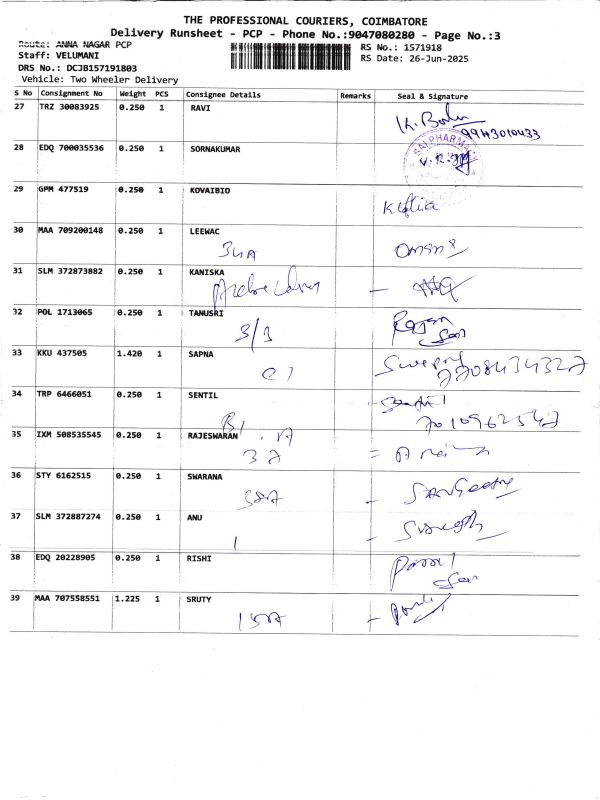 THE PROFESSIONAL COURIERS, COIMBATORE
Delivery Runsheet - PCP - Phone No.:9047080280 - Page No.:3
Route: ANNA NAGAR PCP
RS No.: 1571918
Staff: VELUMANI
RS Date: 26-Jun-2025
DRS No.: DCJB157191803
Vehicle: Two Wheeler Delivery
S No Consignment No Weight PCS Consignee Details Remarks Seal & Signature
27 TRZ 30083925 0.250 1 RAVI
9943010433
28 EDQ 700035536 0.250 1 SORNAKUMAR
29 GPM 477519 0.250 1 KOVAIBIO
30 MAA 709200148 0.250 1 LEEWAC
34A
31 SLM 372873882 0.250 1 KANISKA
32 POL 1713065 0.250 1 TANUSRI
3/3
33 KKU 437505 1.420 1 SAPNA
7708434327
34 TRP 6466051 0.250 1 SENTIL
B1 7010962547
35 IXM 508535545 0.250 1 RAJESWARAN
36 STY 6162515 0.250 1 SWARANA
37 SLM 372887274 0.250 1 ANU
1
38 EDQ 20228905 0.250 1 RISHI
39 MAA 707558551 1.225 1 SRUTY